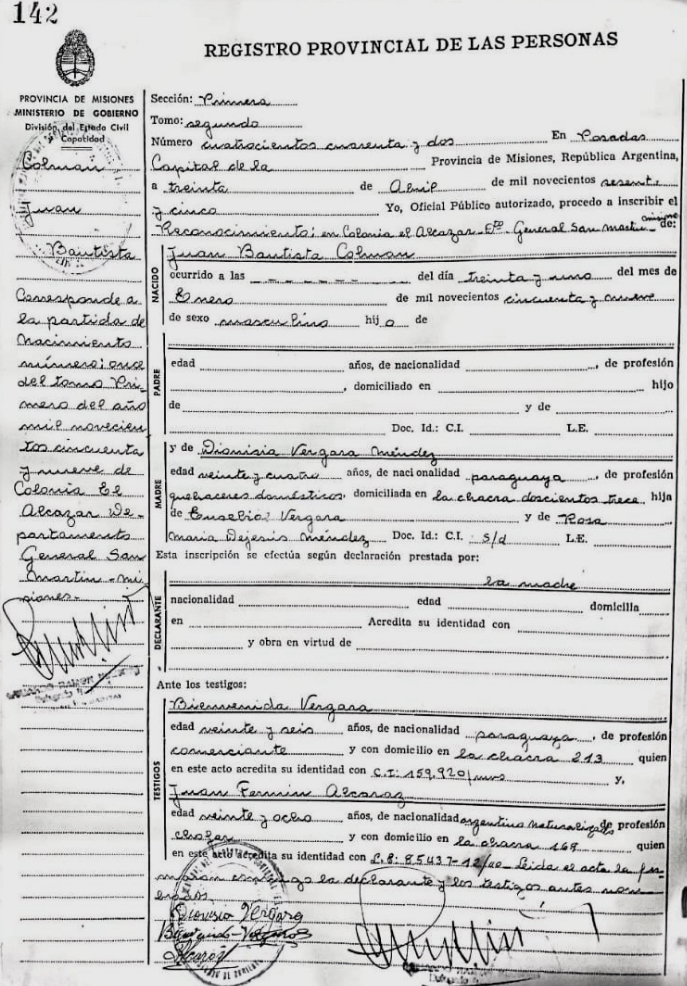 142
REGISTRO PROVINCIAL DE LAS PERSONAS
PROVINCIA DE MISIONES
MINISTERIO DE GOBIERNO
División del Estado Civil
y Capacidad
Colman
Juan
Bautista
Corresponde a
la partida de
Nacimiento
número: once
del tomo Pri-
mero del año
mil novecien
tos cincuenta
y nueve de
Colonia El
Alcazar De-
partamento
General San
Martin - Mi
siones.-
Sección: Primera
Tomo: segundo
Número cuatrocientos cuarenta y dos En Posadas
Capital de la Provincia de Misiones, República Argentina,
a treinta de Abril de mil novecientos sesenta
y cinco Yo, Oficial Público autorizado, procedo a inscribir el
Reconocimiento: en Colonia el Alcazar - Dto. General San Martin - Misiones de:
NACIDO
Juan Bautista Colman
ocurrido a las - - - - - - del día treinta y uno del mes de
Enero de mil novecientos cincuenta y nueve
de sexo masculino hijo de
PADRE
edad años, de nacionalidad , de profesión
, domiciliado en hijo
de y de
Doc. Id.: C.I. L.E.
MADRE
y de Dionisia Vergara Méndez
edad veinte y cuatro años, de nacionalidad paraguaya, de profesión
quehaceres domésticos, domiciliada en la chacra doscientos trece, hija
de Eusebio Vergara y de Rosa
Maria Dejesús Méndez Doc. Id.: C.I. s/d L.E.
Esta inscripción se efectúa según declaración prestada por:
DECLARANTE
la madre
nacionalidad edad domicilia
en Acredita su identidad con
y obra en virtud de
Ante los testigos:
TESTIGOS
Bienvenida Vergara
edad veinte y seis años, de nacionalidad paraguaya, de profesión
comerciante y con domicilio en la chacra 213 quien
en este acto acredita su identidad con C.I: 159.920/mnes y,
Juan Fermin Alcaraz
edad veinte y ocho años, de nacionalidad argentino naturalizado profesión
chofer y con domicilio en la chacra 168 quien
en este acto acredita su identidad con Leida el acta la fir-
maron conmigo la declarante y los testigos antes nom-
brados
Dionisia Vergara
Alcaraz